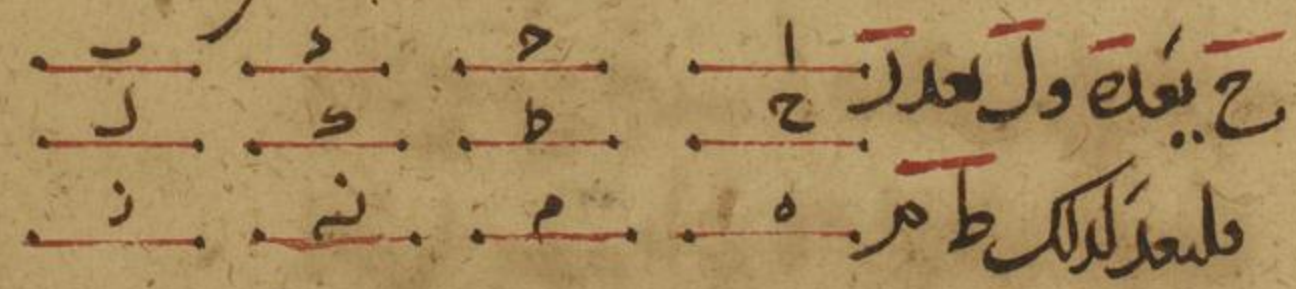 ح يعد ه ول يعد ز
ا ج د ب
ح ط ك ل
فليعد كذلك ط م
ه م ن ز